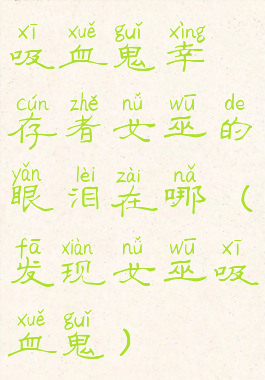 xī xuě guǐ xìng
吸血鬼幸
cún zhě nǔ wū de
存者女巫的
yǎn lèi zài nǎ
眼泪在哪（
fā xiàn nǔ wū xī
发现女巫吸
xuě guǐ
血鬼）